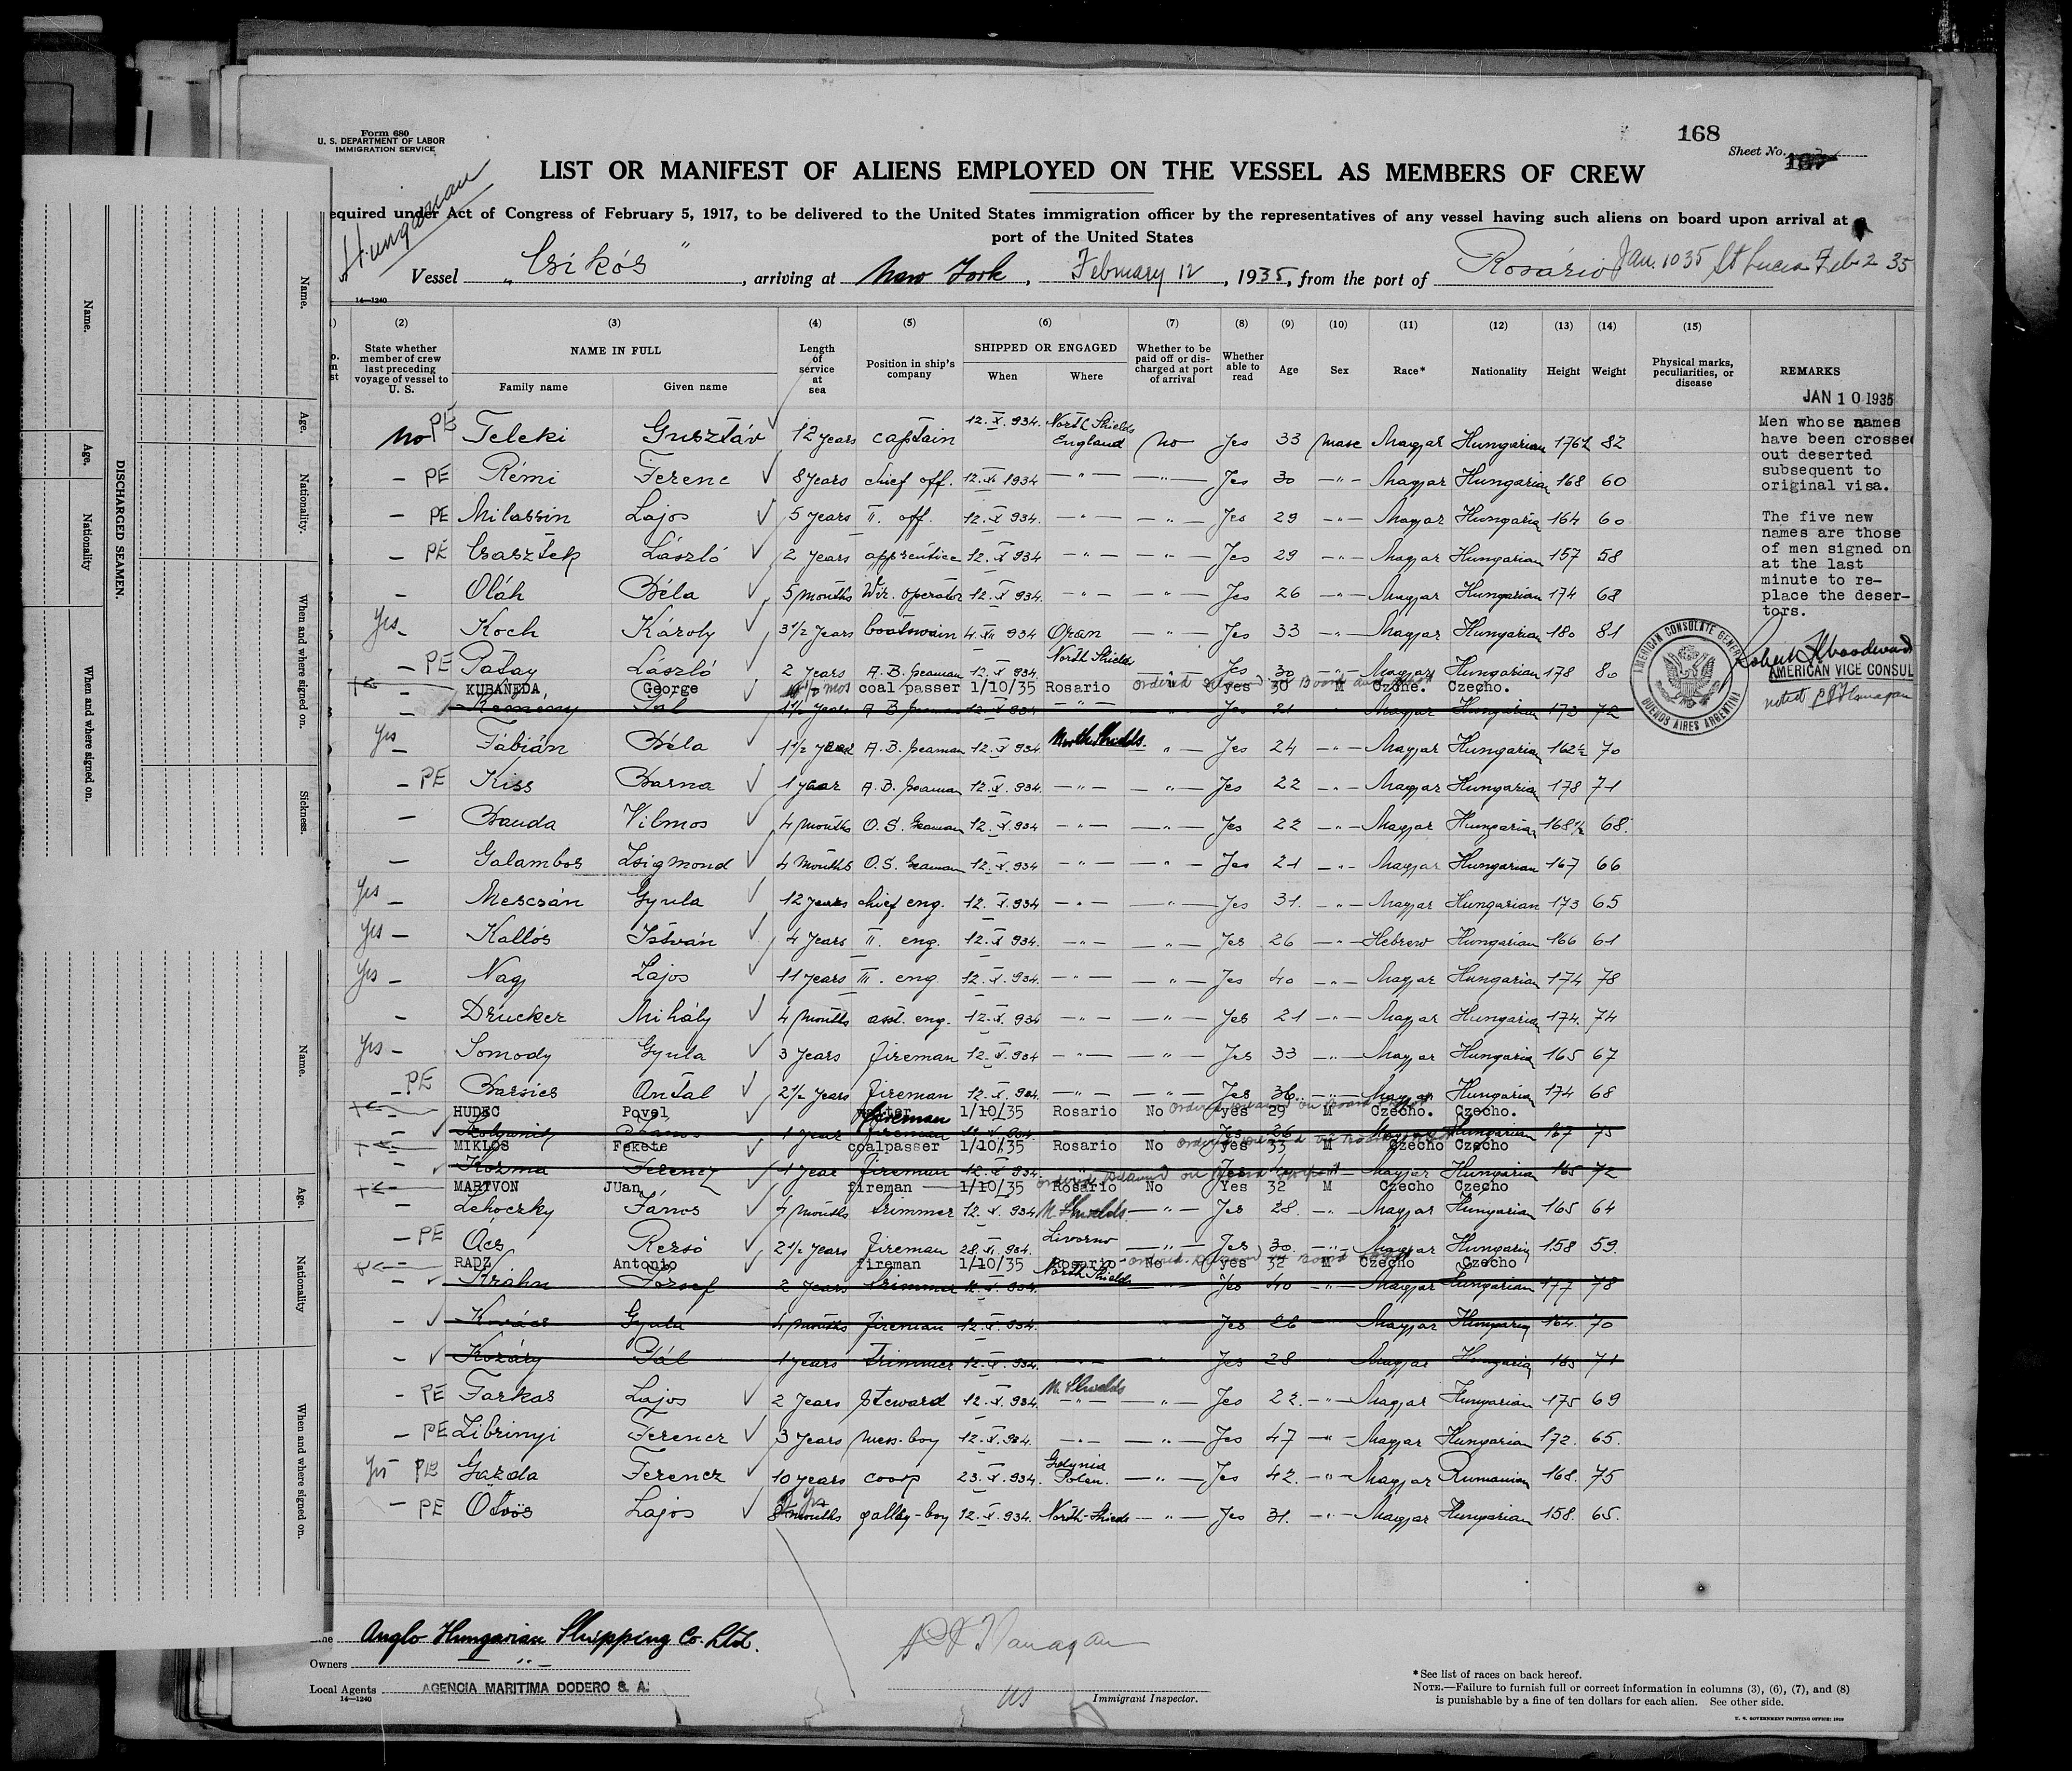 Form 680
U. S. DEPARTMENT OF LABOR
IMMIGRATION SERVICE
Hungarian
168
Sheet No.
LIST OR MANIFEST OF ALIENS EMPLOYED ON THE VESSEL AS MEMBERS OF CREW
equired under Act of Congress of February 5, 1917, to be delivered to the United States immigration officer by the representatives of any vessel having such aliens on board upon arrival at a
port of the United States
Vessel „Csikós", arriving at New York, February 12, 1935, from the port of Rosário Jan. 10 35 St Lucia Feb 2 35
14—1240
(2) (3) (4) (5) (6) (7) (8) (9) (10) (11) (12) (13) (14) (15)
State whether member of crew last preceding voyage of vessel to U. S. NAME IN FULL Family name Given name Length of service at sea Position in ship's company SHIPPED OR ENGAGED When Where Whether to be paid off or discharged at port of arrival Whether able to read Age Sex Race* Nationality Height Weight Physical marks, peculiarities, or disease REMARKS
JAN 10 1935
No PE Teleki Gusztáv 12 years captain 12. X. 934. North Shields England No Yes 33 Male Magyar Hungarian 176½ 82
– PE Rémi Ferenc 8 years chief off. 12. X. 1934 –"– –"– Yes 30 –"– Magyar Hungarian 168 60
– PE Milassin Lajos 5 years II. off. 12. X. 934. –"– –"– Yes 29 –"– Magyar Hungarian 164 60
– PE Csasztek László 2 years apprentice 12. X. 934 –"– –"– Yes 29 –"– Magyar Hungarian 157 58
– Oláh Béla 5 months Wir. operator 12. X. 934. –"– –"– Yes 26 –"– Magyar Hungarian 174 68
Yes – Koch Károly 3½ years boatswain 4. XII 934 Oran –"– Yes 33 –"– Magyar Hungarian 180 81
– PE Patay László 2 years A. B. seaman 12. X. 934. North Shields Yes 30 –"– Magyar Hungarian 178 80
– KUBANEDA, George mos coal passer 1/10/35 Rosario yes 30 M Czone. Czecho.
– Kemeny Pál 1½ years A. B. seaman 12. X. 934 –"– Yes 21 Magyar Hungarian 173 72
Yes – Fábián Béla 1½ year A. B. seaman 12. X. 934 North Shields. –"– Yes 24 –"– Magyar Hungarian 162½ 70
– PE Kiss Barna 1 year A. B. seaman 12. X. 934. –"– –"– Yes 22 –"– Magyar Hungarian 178 71
– Banda Vilmos 4 months O. S. seaman 12. X. 934 –"– –"– Yes 22 –"– Magyar Hungarian 168½ 68.
– Galambos Zsigmond 4 months O. S. seaman 12. X. 934 –"– –"– Yes 21 –"– Magyar Hungarian 167 66
Yes – Mescsán Gyula 12 years chief eng. 12. X. 934 –"– –"– Yes 31. –"– Magyar Hungarian 173 65
Yes – Kallós István 4 years II. eng. 12. X. 934. –"– –"– Yes 26 –"– Hebrew Hungarian 166 61
Yes – Nagy Lajos 11 years III. eng. 12. X. 934. –"– –"– Yes 40 –"– Magyar Hungarian 174 78
– Drucker Mihály 4 months asst. eng. 12. X. 934 –"– –"– Yes 21 –"– Magyar Hungarian 174. 74
Yes – Somody Gyula 3 years fireman 12. X. 934 –"– –"– Yes 33 –"– Magyar Hungarian 165 67
– PE Barsics Antal 2½ years fireman 12. X. 934. –"– –"– Yes 36. –"– Magyar Hungarian 174 68
– HUDEC Povel fireman 1/10/35 Rosario No yes 29 M Czecho. Czecho.
1 year fireman 12. X. 934. Yes 26 Magyar Hungarian 167 75
– MIKLOS Fekete coalpasser 1/10/35 Rosario No yes 33 M Czecho Czecho
– Kozma Ferencz 1 year fireman 12. X. 934. Magyar Hungarian 165 72
– MARTVON JUan fireman 1/10/35 Rosario No Yes 32 M Czecho Czecho
– Lehoczky János 4 months trimmer 12. X. 934 N. Shields –"– Yes 28. –"– Magyar Hungarian 165 64
– PE Ács Rezsó 2½ years fireman 28. XI. 934. Livorno –"– Yes 30. –"– Magyar Hungarian 158 59.
– RADZ Antonio fireman 1/10/35 Rosario No yes 32 M Czecho Czecho
– Krahn József 2 years trimmer 12. X. 934. North Shields Yes 40 –"– Magyar Hungarian 177 78
– Kovács Gyula 4 months fireman 12. X. 934. Yes 26 Magyar Hungarian 164. 70
– Kozáry Pál 1 years trimmer 12. X. 934. Yes 28 Magyar Hungarian 165 71
– PE Farkas Lajos 2 years steward 12. X. 934. N. Shields –"– –"– Yes 22. –"– Magyar Hungarian 175 69
– PE Librinyi Ferencz 3 years mess-boy 12. X. 934. –"– –"– Yes 47 –"– Magyar Hungarian 172. 65.
Yes PE Gazda Ferencz 10 years coop 23. X. 934. Gdynia Polen. –"– Yes 42. –"– Magyar Rumanian 168. 75
– PE Ötvös Lajos months galley-boy 12. X. 934. North-Shields –"– Yes 31. –"– Magyar Hungarian 158. 65.
Men whose names
have been crossed
out deserted
subsequent to
original visa.
The five new
names are those
of men signed on
at the last
minute to re-
place the deser-
tors.
AMERICAN CONSULATE GENERAL
BUENOS AIRES ARGENTINA
Robert F. Woodward
AMERICAN VICE CONSUL
noted P J Flanagan
Anglo Hungarian Shipping Co. Ltd.
Owners –"–
Local Agents AGENCIA MARITIMA DODERO S. A.
14—1240
P J Flanagan
US Immigrant Inspector.
*See list of races on back hereof.
NOTE.—Failure to furnish full or correct information in columns (3), (6), (7), and (8)
is punishable by a fine of ten dollars for each alien. See other side.
U. S. GOVERNMENT PRINTING OFFICE: 1929
DISCHARGED SEAMEN.
Name.
Age.
Nationality
When and where signed on.
Name.
Age.
Nationality.
When and where signed on.
Sickness.
Name.
Age.
Nationality
When and where signed on.